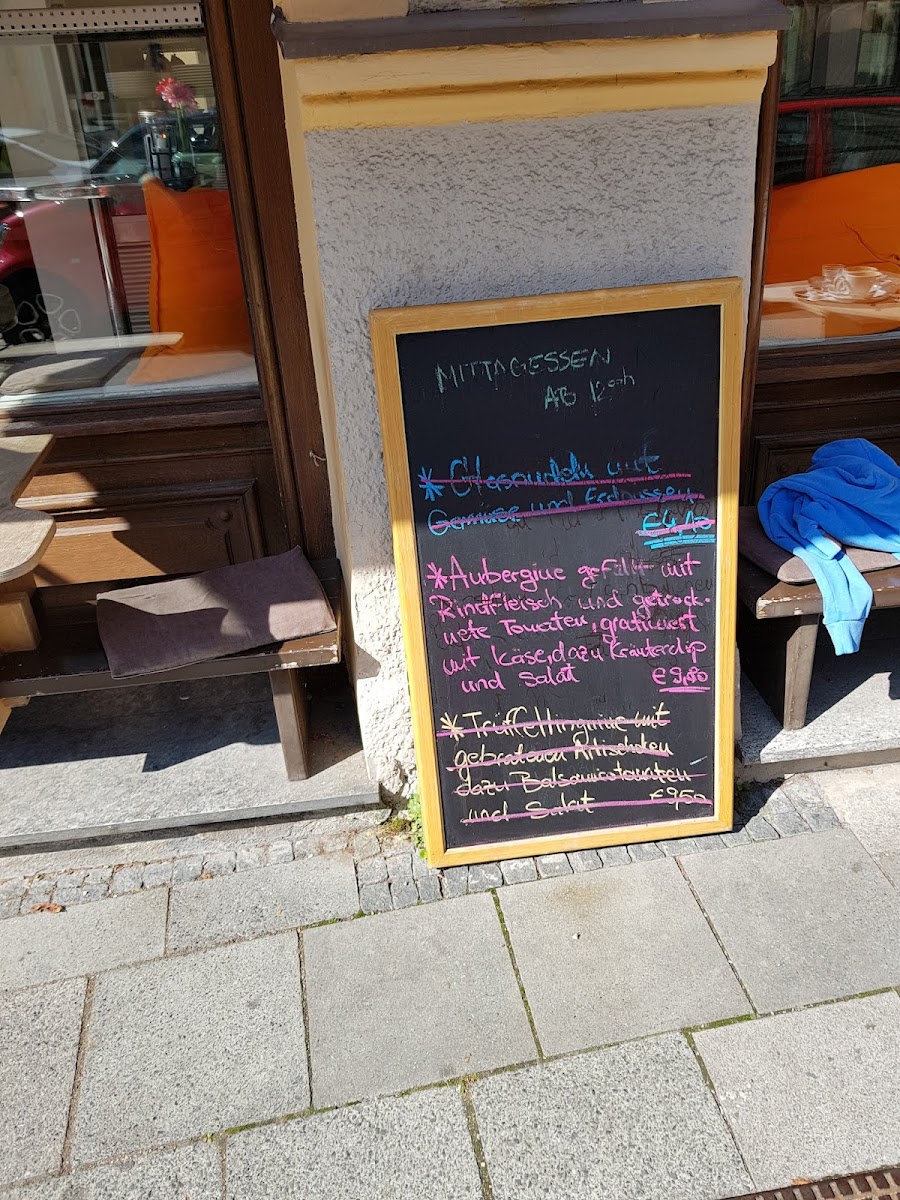 MITTAGESSEN
AB 12ººh
* Glasnudeln mit
Gemüse und Erdnüssen
€4,10
* Aubergine gefüllt mit
Rindfleisch und getrock-
nete Tomaten, gratiniert
mit Käse, dazu Kräuterdip
und Salat €9,80
* Trüffellinguine mit
gebratenen Artischoken
dazu Balsamicotomaten
und Salat €9,50